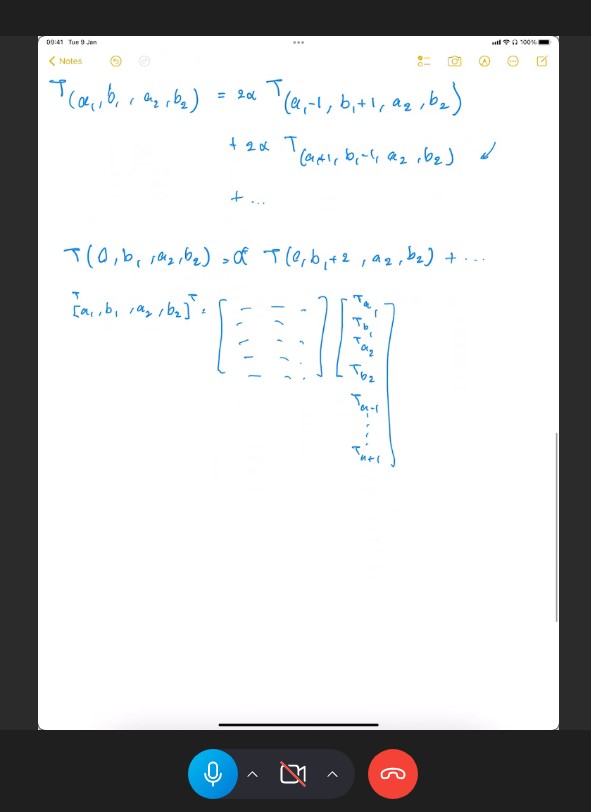 09:41 Tue 9 Jan
100%
Notes
T(a₁, b₁, a₂, b₂) = 2α T(a₁-1, b₁+1, a₂, b₂)
+ 2α T(a+1, b₁-1, a₂, b₂) ✓
+ ...
T(0, b₁, a₂, b₂) = α T(0, b₁+2, a₂, b₂) + ...
T[a₁, b₁, a₂, b₂]ᵀ =
Ta₁
Tb₁
Ta₂
Tb₂
Ta-1
Tn+1